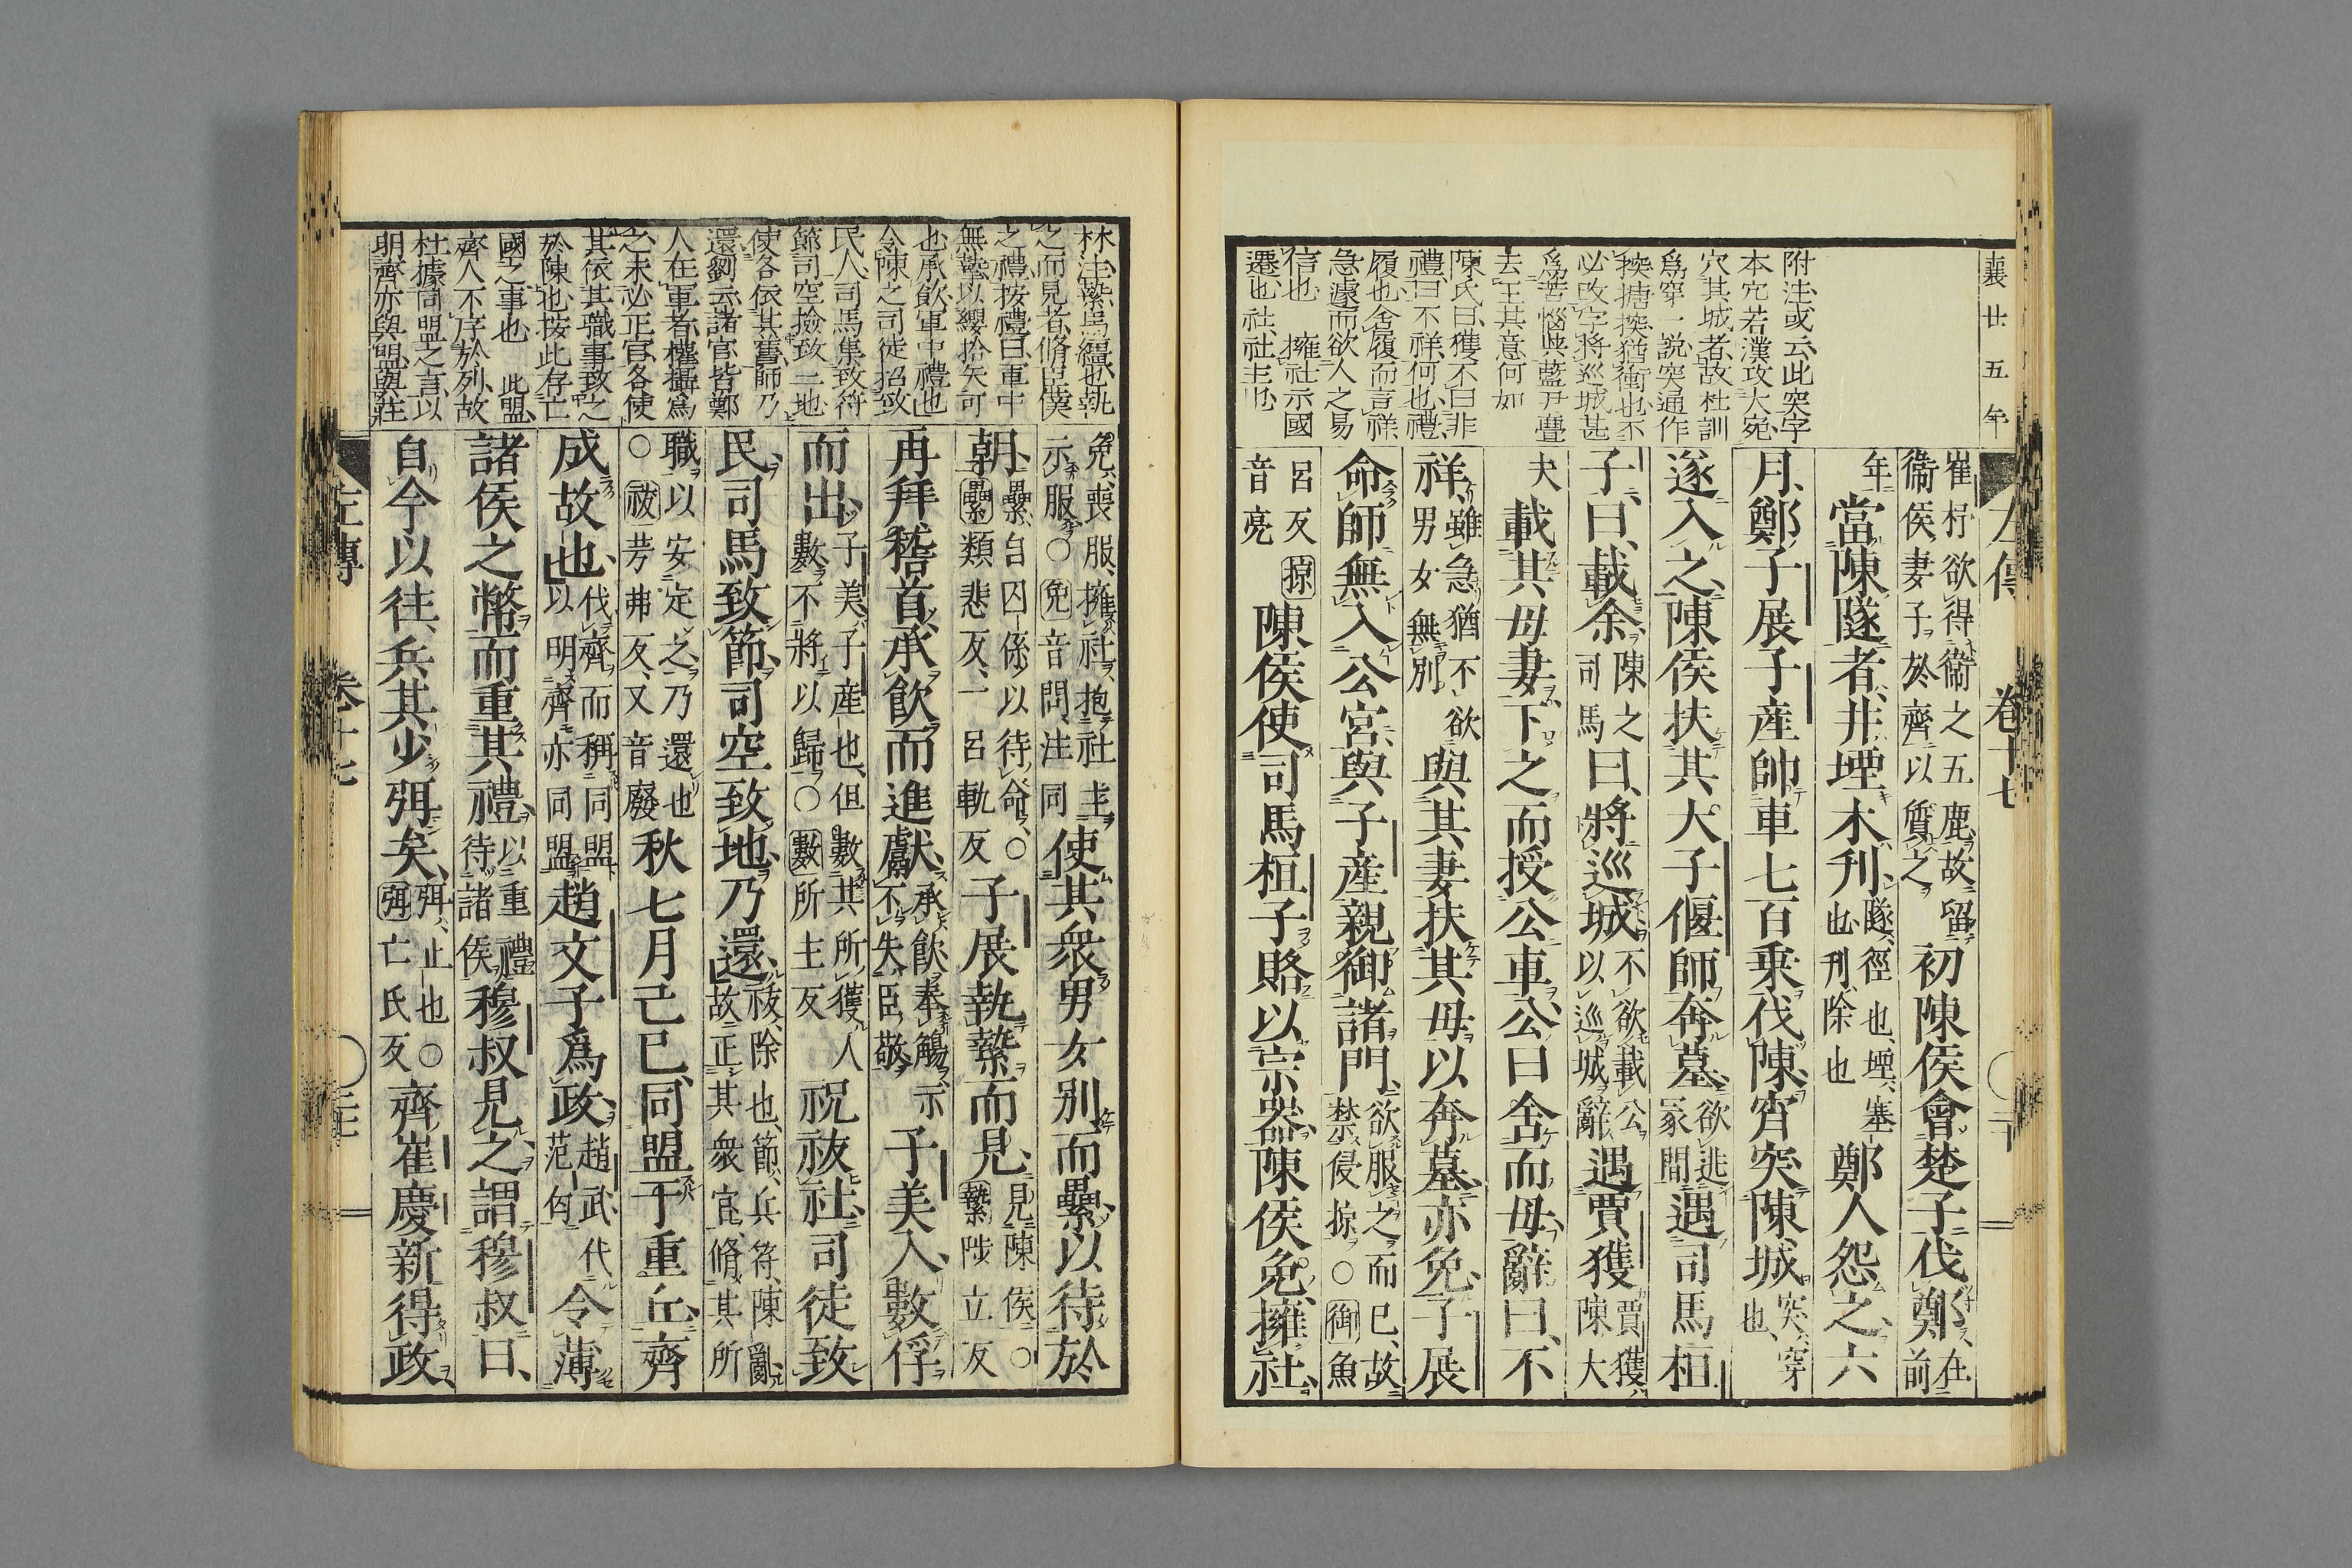 襄廿五年
左傳 卷十七 二十
附注或云此突字
本穴若漢攻大宛
穴其城者故杜訓
爲穿一説突通作
揬搪揬猶衝也不
必改字將巡城甚
爲苦惱與藍尹亹
去王其意何如
陳氏曰獲不曰非
禮曰不祥何也禮
履也舍履而言祥
急遽而欲人之易
信也 擁社示國
遷也社社主也
崔杼欲得衞之五鹿故留衞侯妻子於齊以質之初陳侯會楚子伐鄭在前
年當陳隧者井堙木刊隧徑也堙塞也刊除也鄭人怨之六
月鄭子展子産帥車七百乗伐陳宵突陳城突穿也
遂入之陳侯扶其大子偃師奔墓欲逃冢間遇司馬桓
子曰載余陳之司馬曰將巡城不欲載公以巡城辭遇賈獲賈獲陳大
夫載其母妻下之而授公車公曰舍而母辭曰不
祥雖急猶不欲男女無別與其妻扶其母以奔墓亦免子展
命師無入公宮與子産親御諸門欲服之而已故禁侵掠○御魚
呂反掠音亮陳侯使司馬桓子賂以宗器陳侯免擁社
林注縶馬繮也執
之而見者脩臣僕
之禮按禮曰軍中
無摯以纓拾矢可
也承飲軍中禮也
令陳之司徒招致
民人司馬集致符
節司空撿致土地
使各依其舊師乃
還劉云諸官皆鄭
人在軍者權攝爲
之未必正官各使
其依其職事致之
於陳也按此存亡
國之事也 此盟
齊人不序於列故
杜據同盟之言以
明齊亦與盟與莊
免喪服擁社抱社主示服○免音問注同使其衆男女別而纍以待於
朝纍自囚係以待命○纍類悲反一呂軌反子展執縶而見見陳侯○縶陟立反
再拜稽首承飲而進獻承飲奉觴示不失臣敬子美入數俘
而出子美子産也但數其所獲人數不將以歸○數所主反祝祓社司徒致
民司馬致節司空致地乃還祓除也節兵符陳亂故正其衆官脩其所
職以安定之乃還也○祓芳弗反又音廢秋七月己巳同盟于重丘齊
成故也伐齊而稱同盟以明齊亦同盟趙文子爲政趙武代范匄令薄
諸侯之幣而重其禮以重禮待諸侯穆叔見之謂穆叔曰
自今以往兵其少弭矣弭止也○弭亡氏反齊崔慶新得政
左傳 卷十七